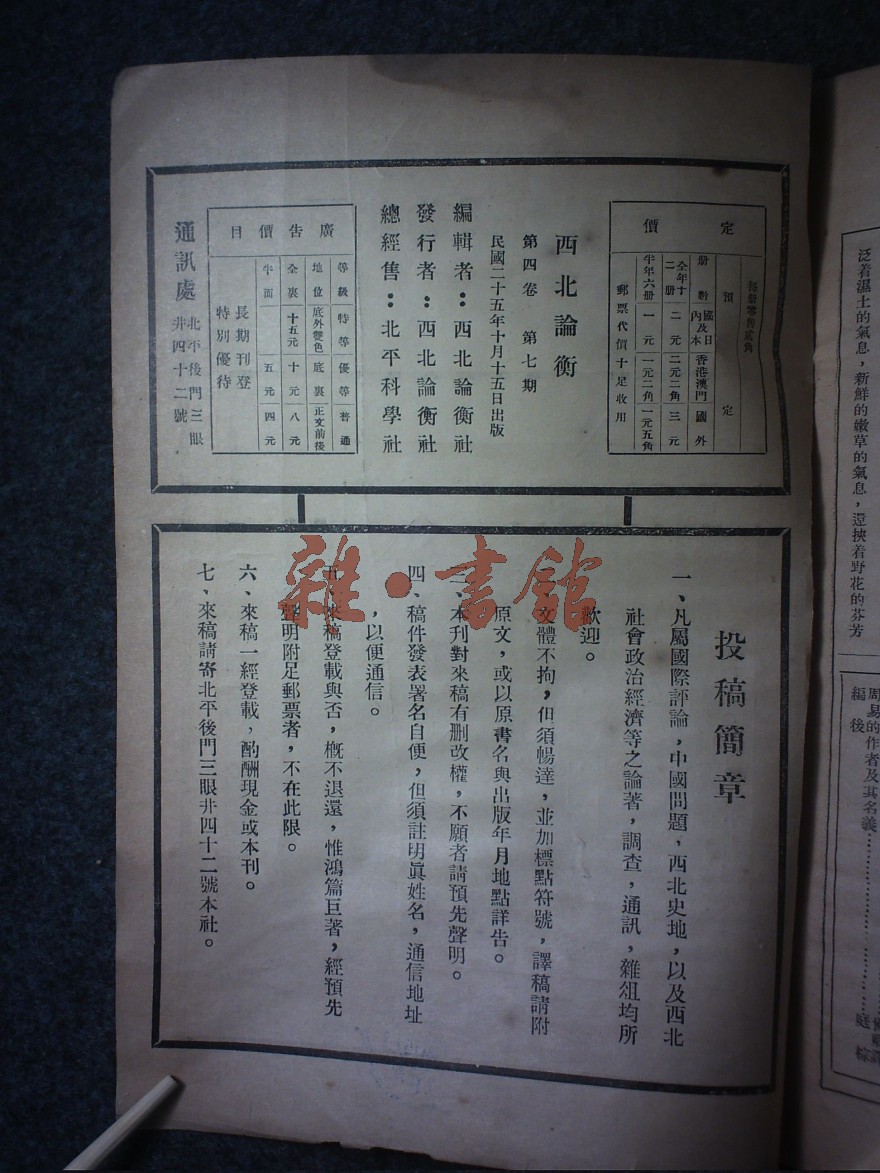 定價
每冊零售貳角
預定
冊數 國內及日本 香港澳門 國外
全年十二冊 二元 二元二角 三元
半年六冊 一元 一元二角 一元五角
郵票代價十足收用
西北論衡
第四卷 第七期
民國二十五年十月十五日出版
編輯者：西北論衡社
發行者：西北論衡社
總經售：北平科學社
廣告價目
等級 特等 優等 普通
地位 底外雙色 底裏 正文前後
全裏 十五元 十元 八元
半面 五元 四元
長期刊登
特別優待
通訊處 北平後門三眼
井四十二號
投稿簡章
一、凡屬國際評論，中國問題，西北史地，以及西北
社會政治經濟等之論著，調查，通訊，雜俎均所
歡迎。
文體不拘，但須暢達，並加標點符號，譯稿請附
原文，或以原書名與出版年月地點詳告。
三、本刊對來稿有刪改權，不願者請預先聲明。
四、稿件發表署名自便，但須註明眞姓名，通信地址
，以便通信。
五、來稿登載與否，槪不退還，惟鴻篇巨著，經預先
聲明附足郵票者，不在此限。
六、來稿一經登載，酌酬現金或本刊。
七、來稿請寄北平後門三眼井四十二號本社。
雜·書館
泛着濕土的氣息，新鮮的嫩草的氣息，還挾着野花的芬芳
周易的作者及其名義
編後